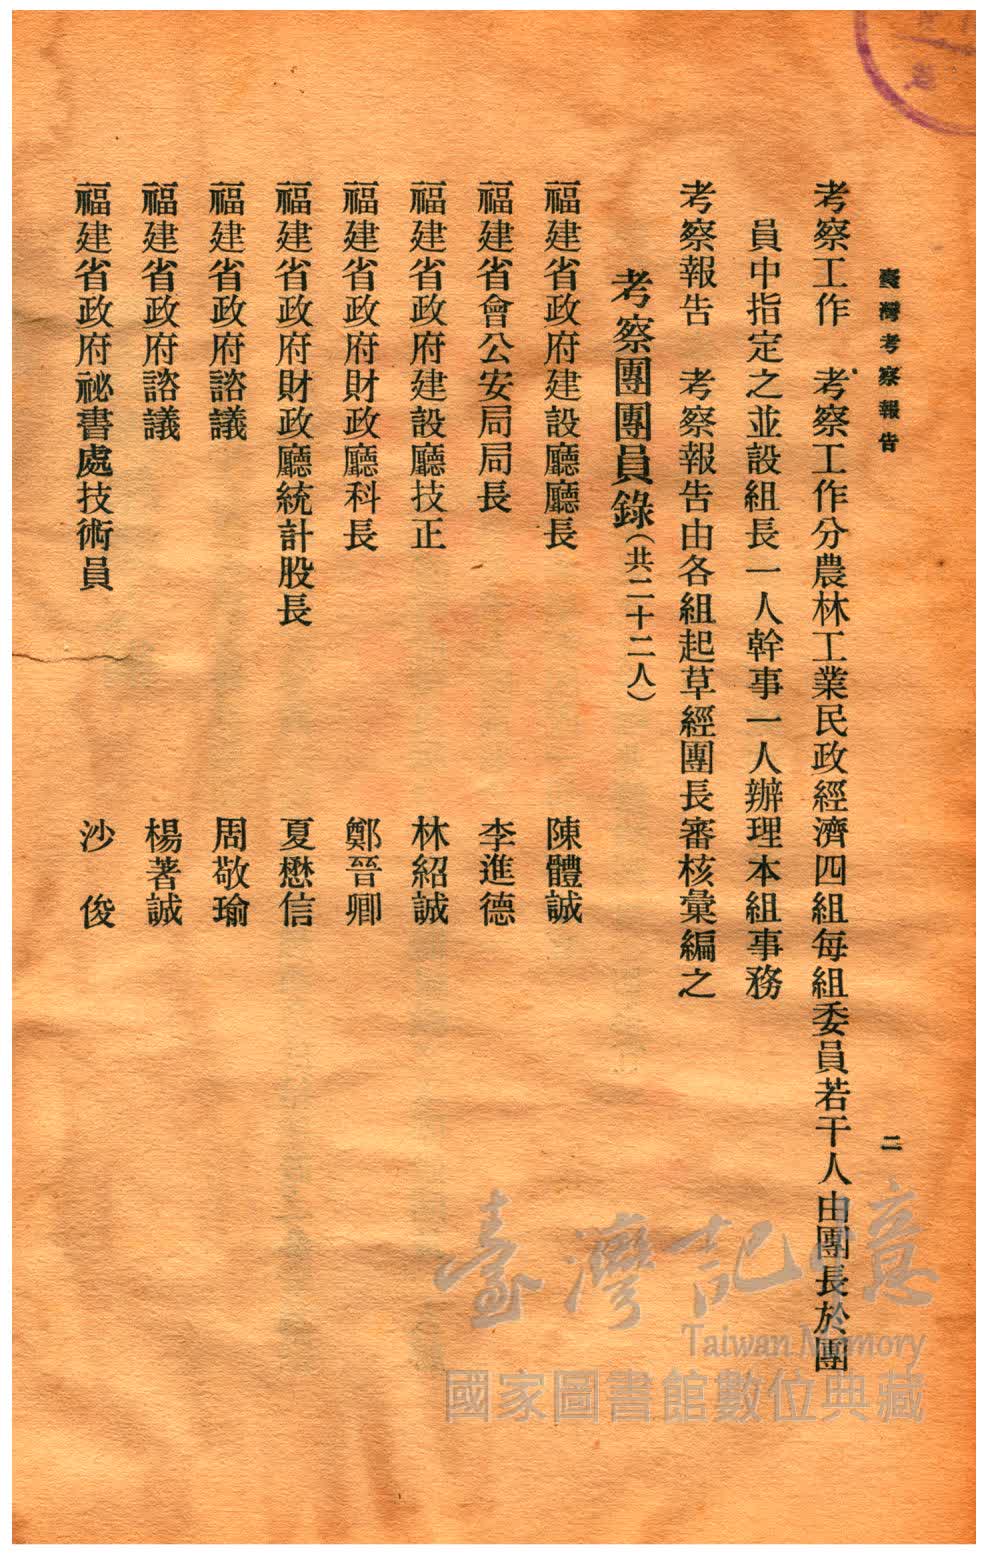 臺灣考察報告
二
考察工作　考察工作分農林工業民政經濟四組每組委員若干人由團長於團
員中指定之並設組長一人幹事一人辦理本組事務
考察報告　考察報告由各組起草經團長審核彙編之
考察團團員錄（共二十二人）
福建省政府建設廳廳長　陳體誠
福建省會公安局局長　李進德
福建省政府建設廳技正　林紹誠
福建省政府財政廳科長　鄭晉卿
福建省政府財政廳統計股長　夏懋信
福建省政府諮議　周敬瑜
福建省政府諮議　楊著誠
福建省政府祕書處技術員　沙　俊
臺灣記憶
Taiwan Memory
國家圖書館數位典藏